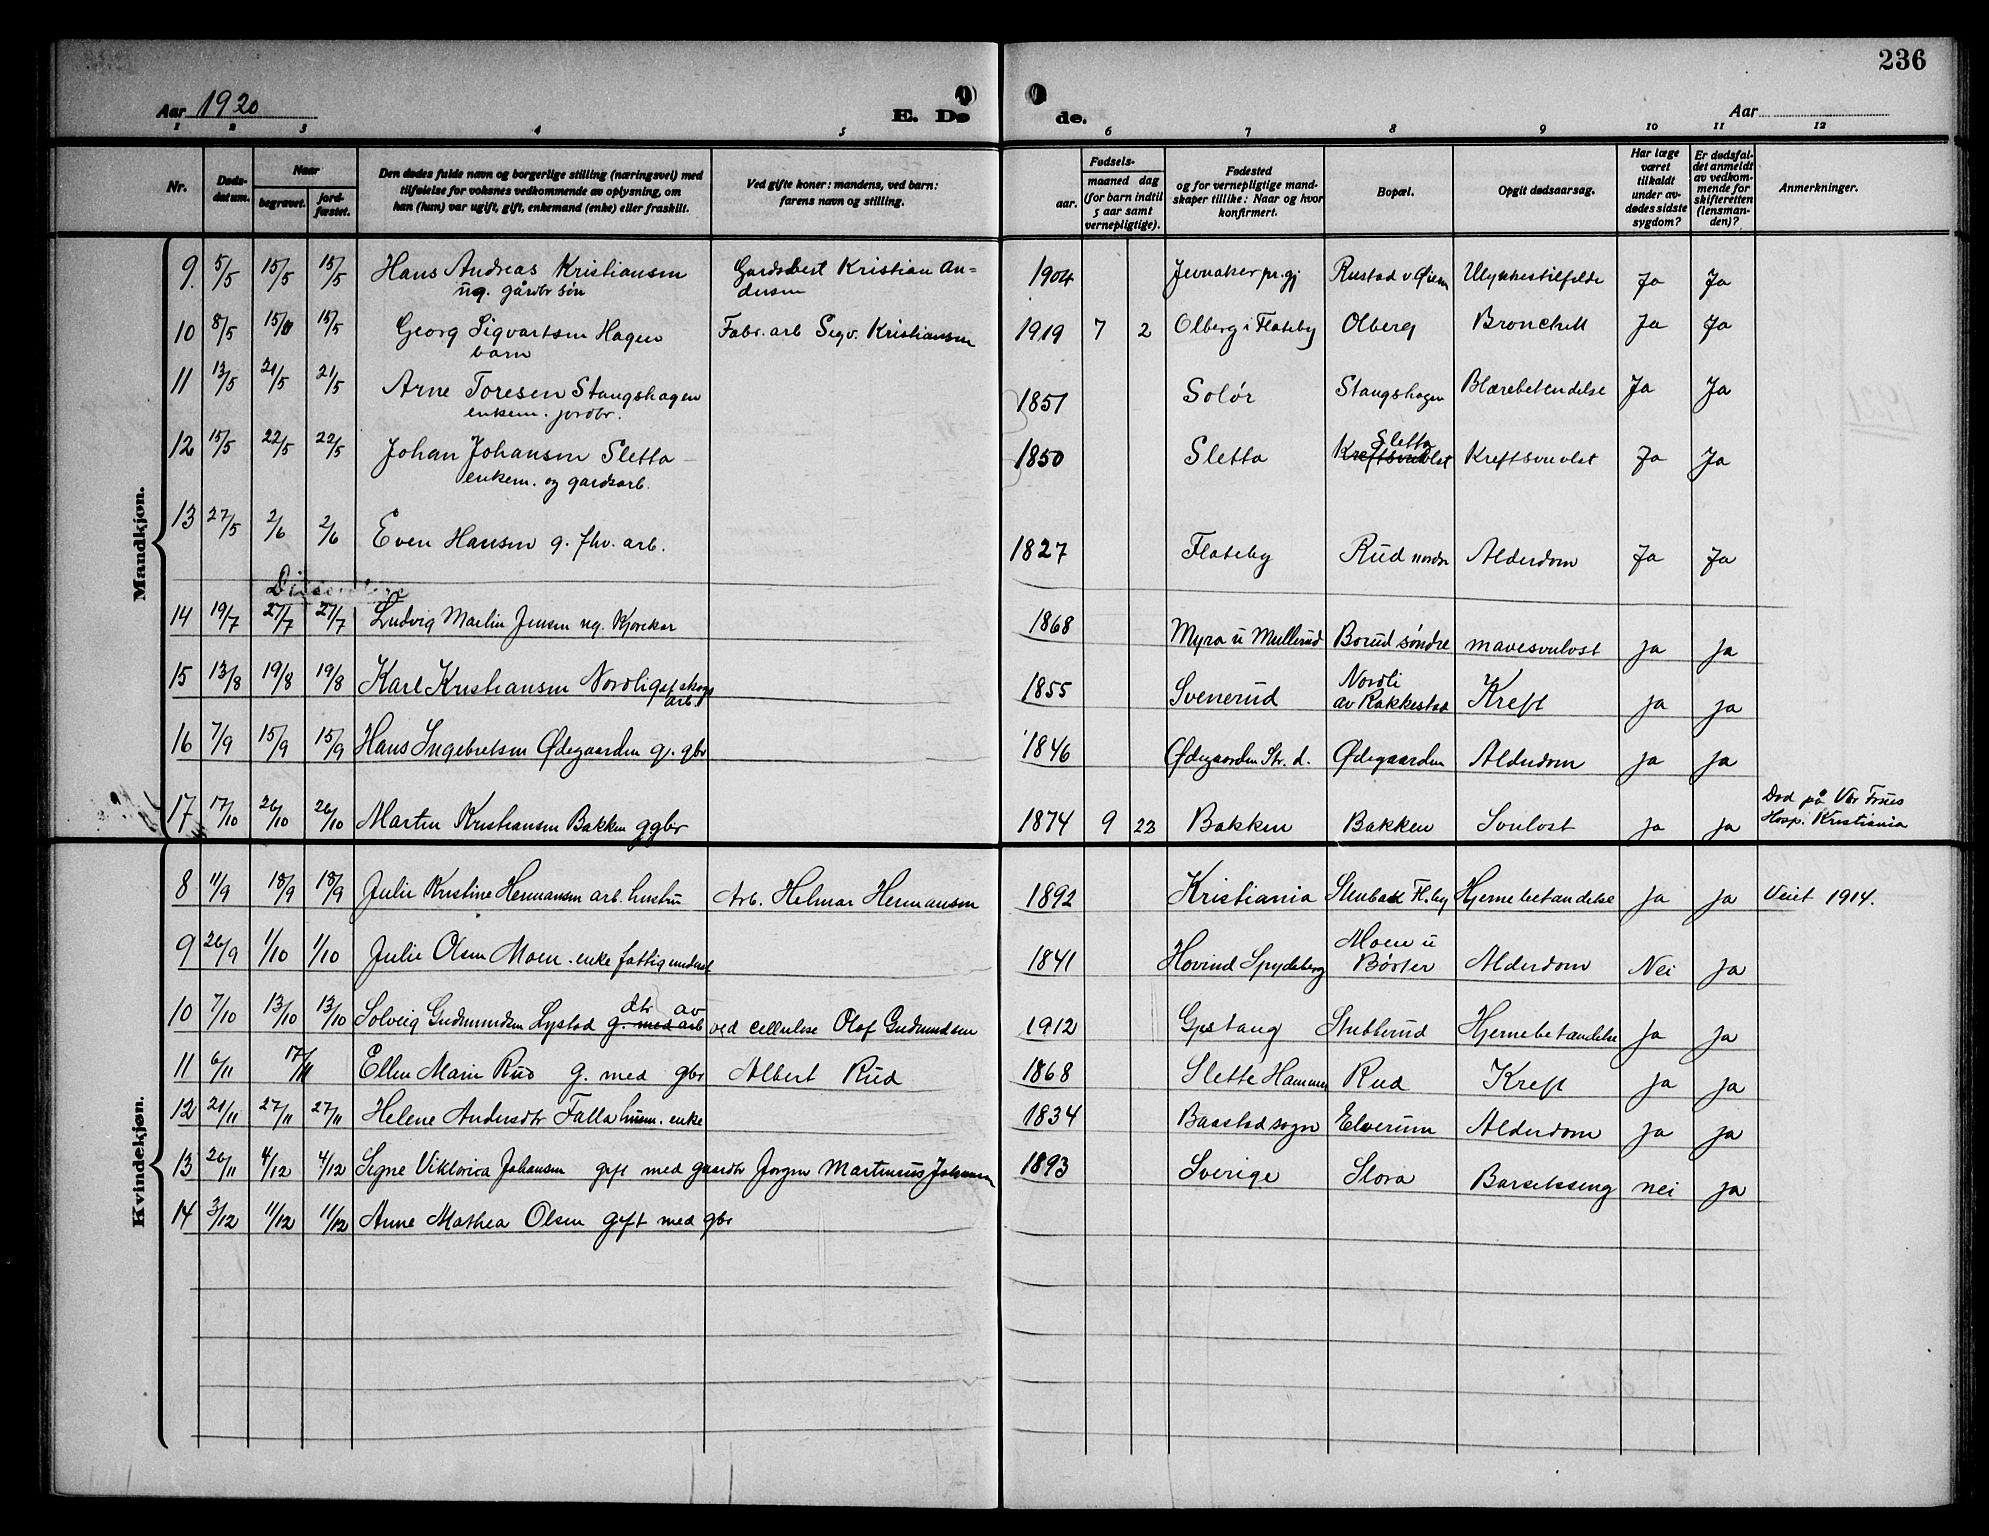 236
Aar 1920
E. Dø
de.
Aar
1 2 3 4 5 6 7 8 9 10 11 12
Nr.
Døds-
datum.
Naar
begravet.
jord-
fæstet.
Den dødes fulde navn og borgerlige stilling (næringsvei) med
tilføielse for voksnes vedkommende av oplysning, om
han (hun) var ugift, gift, enkemand (enke) eller fraskilt.
Ved gifte koner: mandens, ved barn:
farens navn og stilling.
Fødsels-
aar.
maaned dag
(for barn indtil
5 aar samt
vernepligtige).
Fødested
og for vernepligtige mand-
skaper tillike: Naar og hvor
konfirmert.
Bopæl.
Opgit dødsaarsag.
Har læge
været
tilkaldt
under av-
dødes sidste
sygdom?
Er dødsfal-
det anmeldt
av vedkom-
mende for
skifteretten
(lensman-
den)?
Anmerkninger.
Mandkjøn.
9. 5/5 15/5 15/5 Hans Andreas Kristiansen Gardsbest Kristian An- 1904 Jevnaker pr.gj Rustad v Øieren Ulykkestilfelde Ja Ja
ug. gårdbr søn dersen
10 8/5 15/5 15/5 Georg Sigvartsen Hagen Fabr. arb Sigv. Kristiansen 1919 7 2 Olberg i Flateby Olberg Bronchitt Ja Ja
barn
11 13/5 21/5 21/5 Arne Toresen Stangshagen 1851 Solør Stangshagen Blærebetendelse Ja Ja
enkem. jordbr.
12 15/5 22/5 22/5 Johan Johansen Sletta 1850 Sletta Sletta Kreftsvulst Ja Ja
enkem. og gardsarb.
13 27/5 2/6 2/6 Even Hansen g. fhv. arb. 1827 Flateby Rud nordre Alderdom Ja Ja
14 19/7 27/7 27/7 Ludvig Martin Jensen ug. Kjørekar 1868 Myra u Mullerud Borud søndre mavesvulst Ja Ja
15 13/8 19/8 19/8 Karl Kristiansen Nordli gift skogs 1855 Svenerud Nordli Kreft Ja Ja
arb. av Rakkestad
16 7/9 15/9 15/9 Hans Ingebretsen Ødegaarden g. gbr 1846 Ødegaarden Str. d. Ødegaarden Alderdom Ja Ja
17 17/10 26/10 26/10 Martin Kristiansen Bakken g gbr 1874 9 23 Bakken Bakken Svulst Ja Ja Død på Vor Frues
Hosp. Kristiania
Kvindekjøn.
8 11/9 18/9 18/9 Julie Kristine Hermansen arb. hustru Arb. Helmar Hermansen 1892 Kristiania Stenbæk Fl.by Hjernebetændelse Ja Ja Viet 1914.
9 26/9 1/10 1/10 Julie Olsen Moen. enke fattigunderst 1841 Hovind Spydeberg Moen u Alderdom Nei Ja
Børter
10 7/10 13/10 13/10 Solveig Gudmundsen Lystad g. med arb dtr av ved cellulose Olaf Gudmundsen 1912 Stubberud Hjernebetændelse Ja Ja
11 6/11 17/11 Ellen Marie Rud g. med gbr Albert Rud 1868 Slette Hammer Rud Kreft Ja Ja
12 21/11 27/11 27/11 Helene Andersdtr Falla husm. enke 1834 Baastad sogn Elverum Alderdom Ja Ja
13 26/11 4/12 4/12 Signe Viktoria Johansen gift med gaardbr Jørgen Martinius Johansen 1893 Sverige Slora Barselsseng nei Ja
14 3/12 11/12 11/12 Anne Mathea Olsen gift med gbr